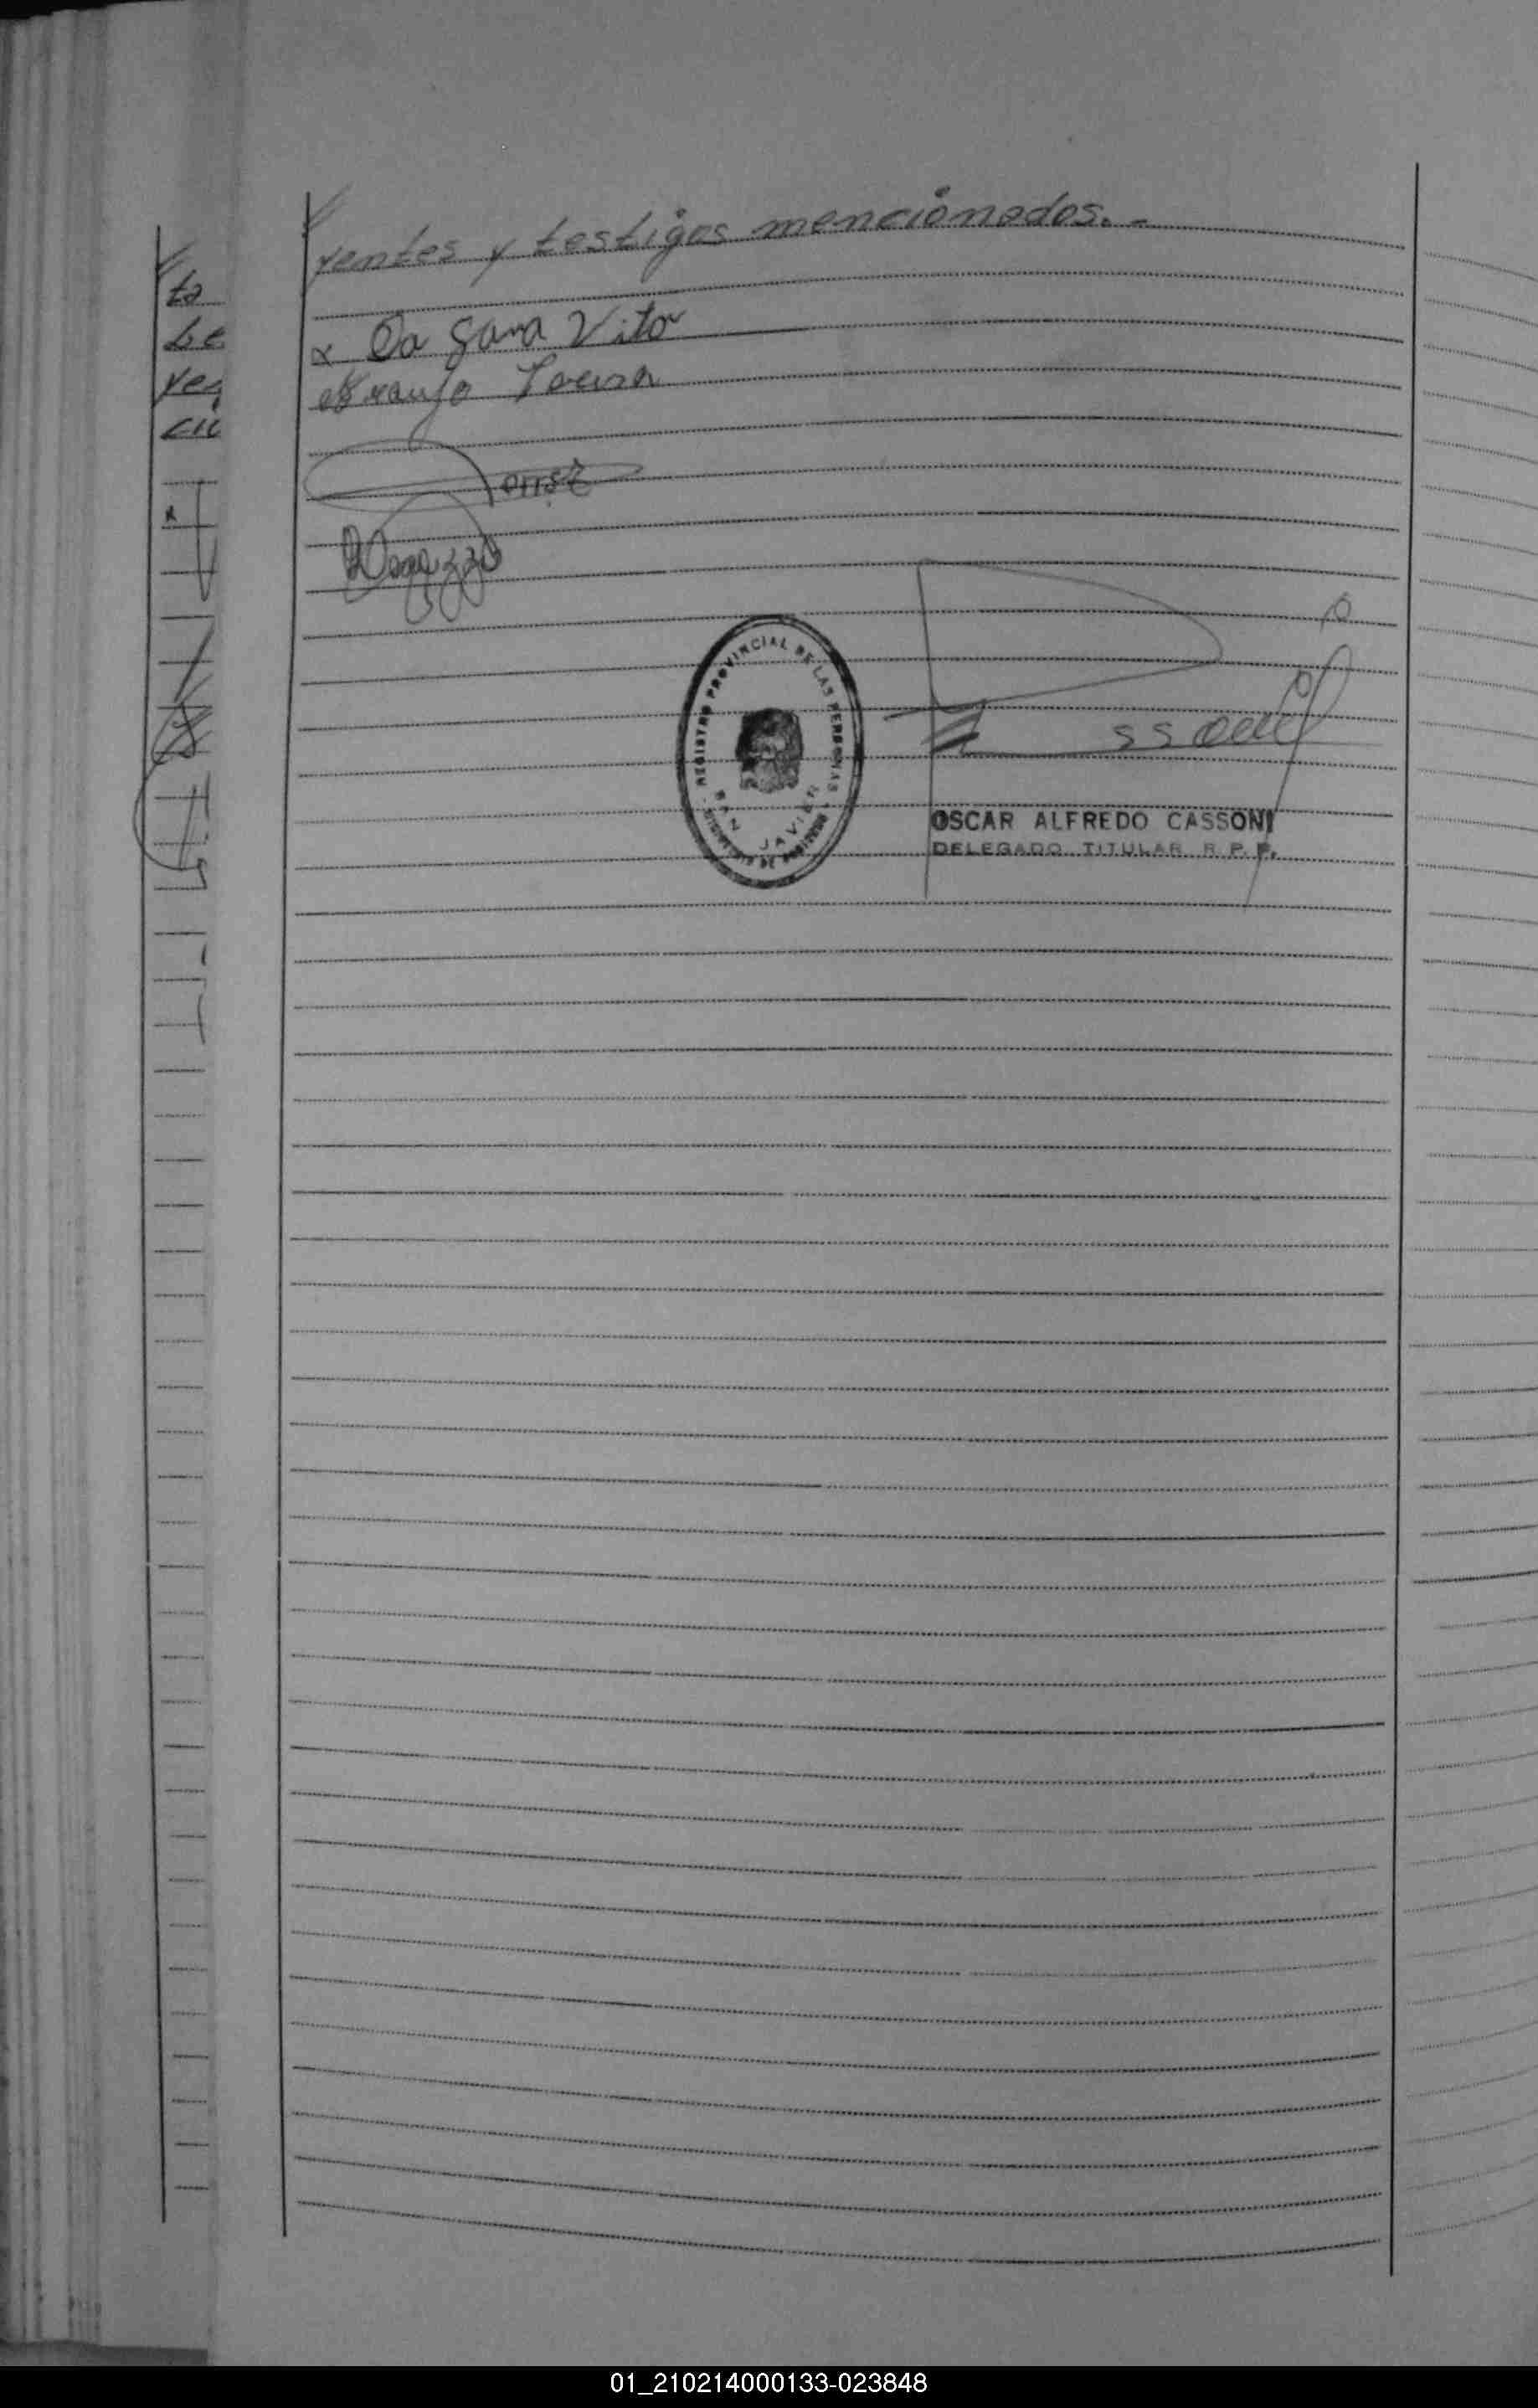 ta
be
yen
cii
yentes y testigos mencionados.-
x Da Gama Vitor
Araujo Loura
REGISTRO PROVINCIAL DE LAS PERSONAS
SAN JAVIER
OSCAR ALFREDO CASSONI
DELEGADO TITULAR R.P.P.
01_210214000133-023848